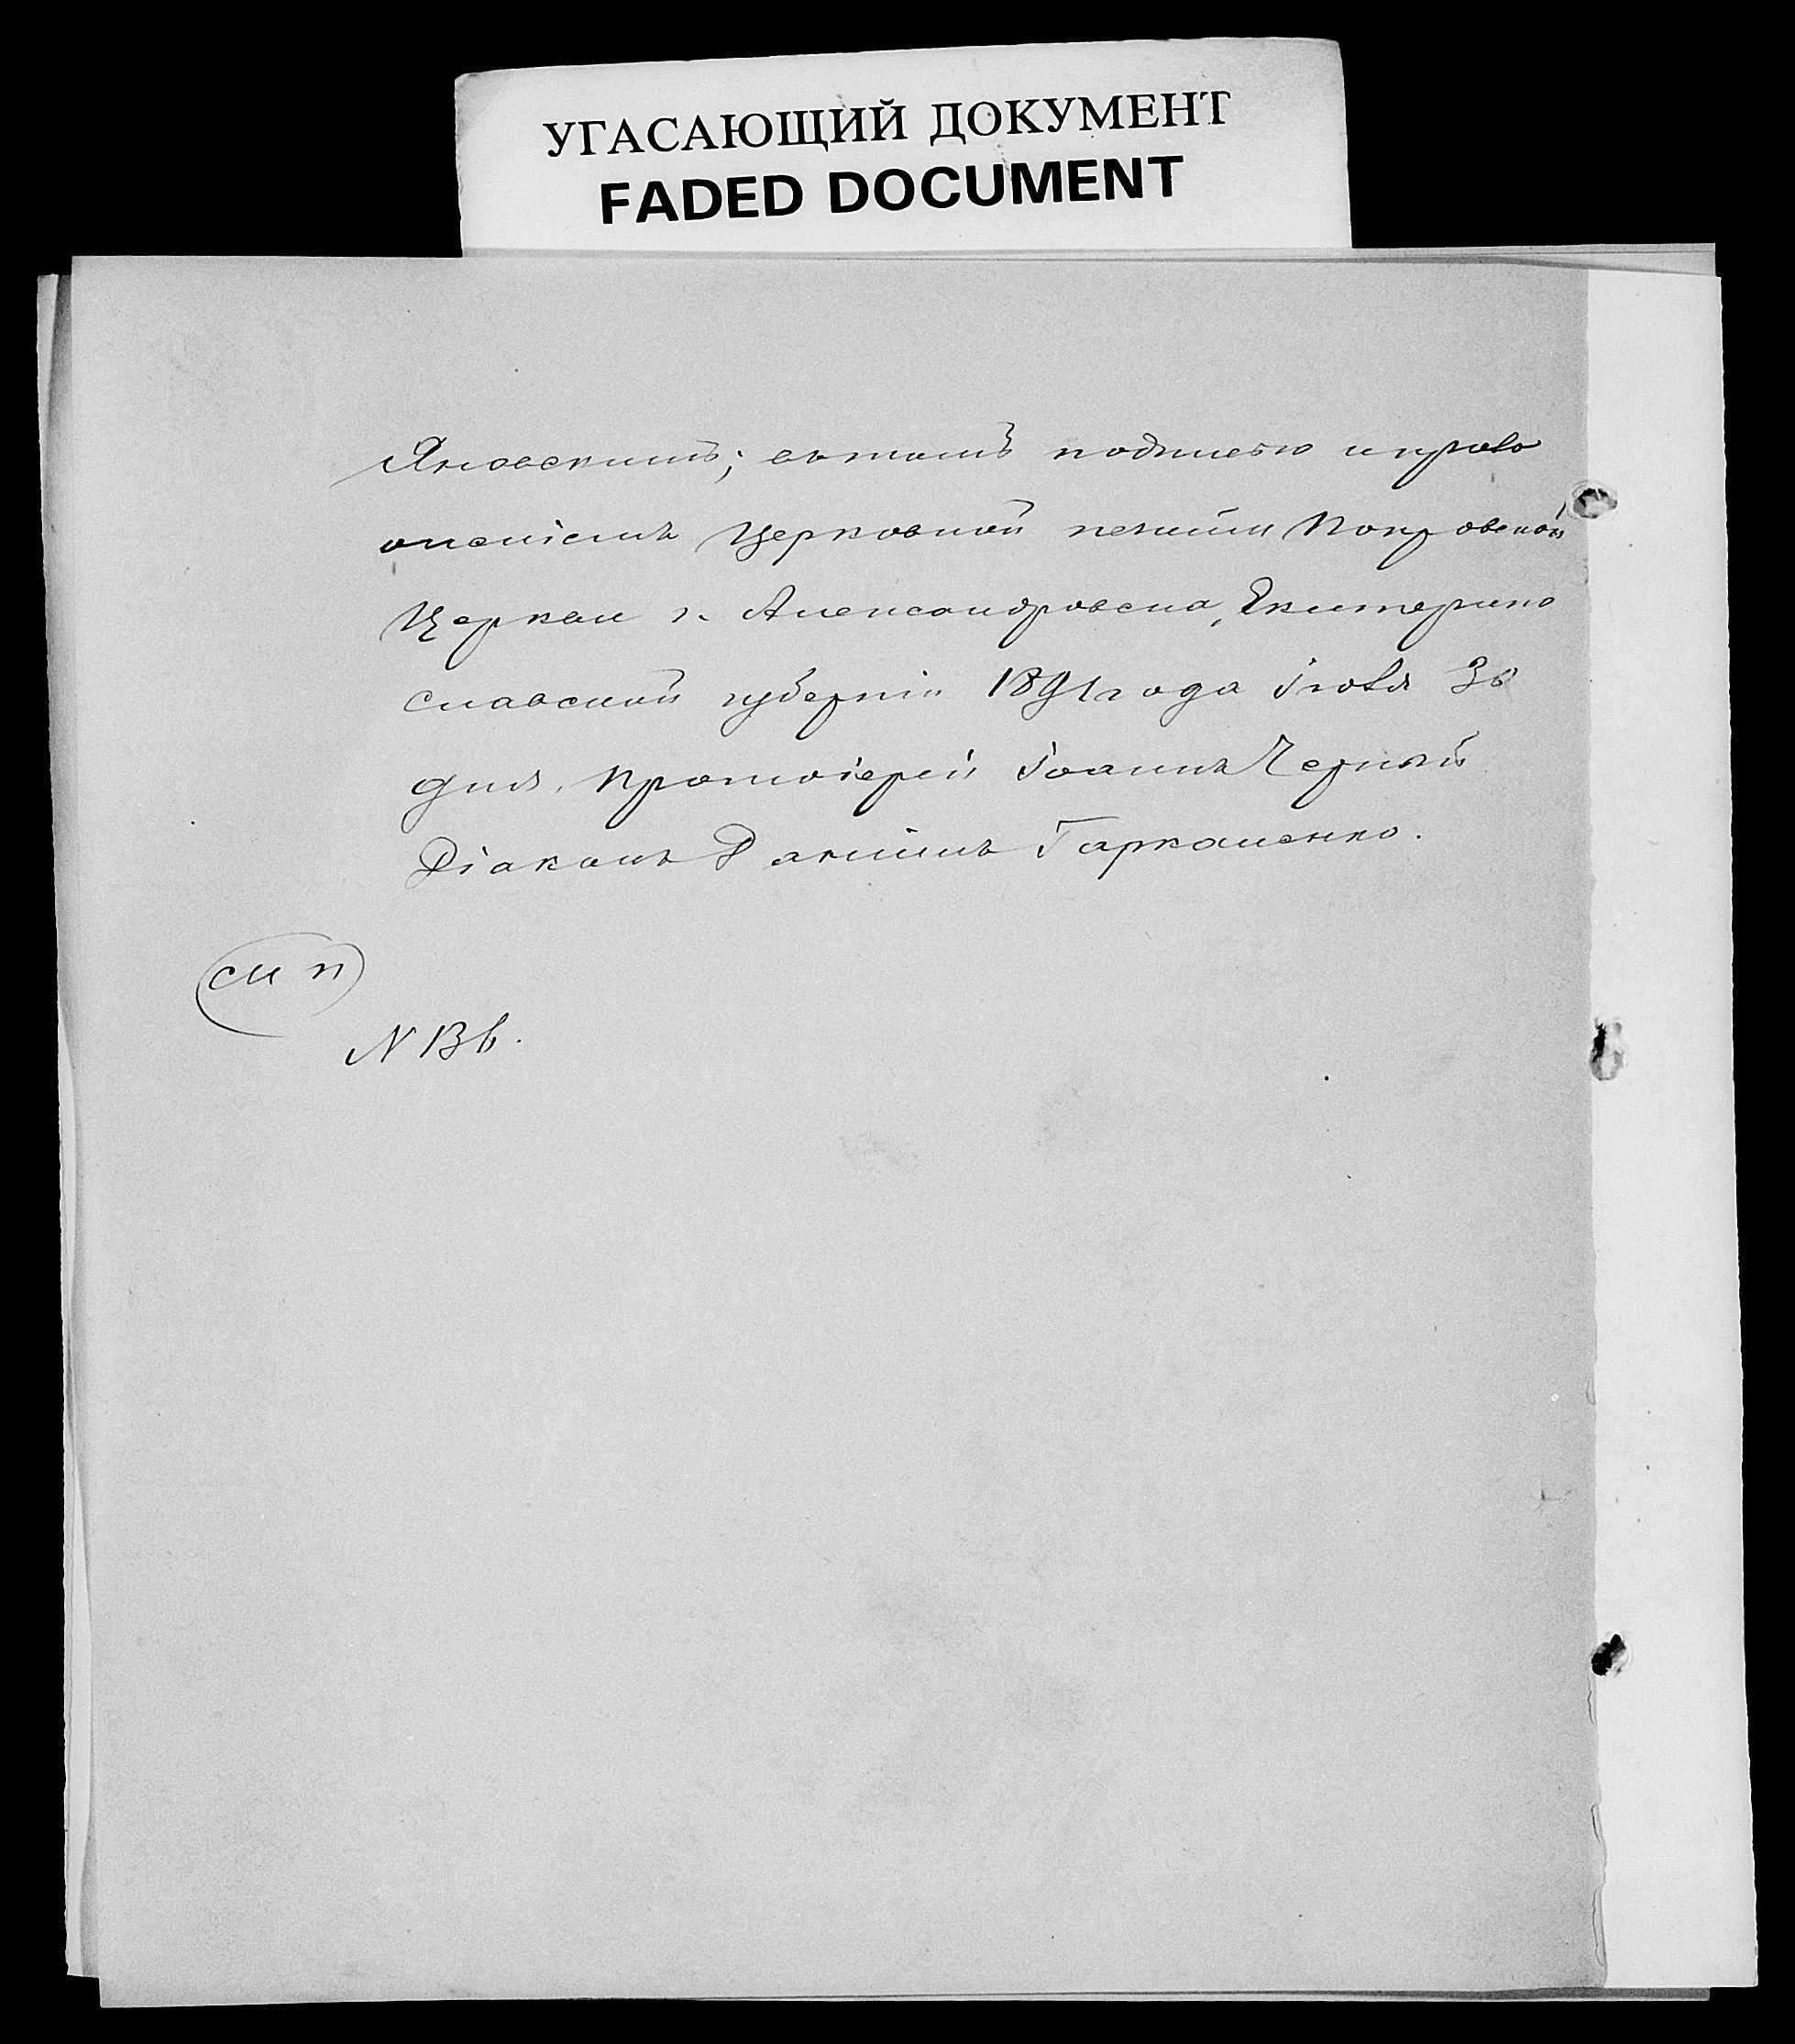 УГАСАЮЩИЙ ДОКУМЕНТ
FADED DOCUMENT
Яновскимъ; въ томъ подписью и прило
женіемъ Церковной печати Покровской
Церкви г. Александровска, Екатерино
славской губерніи 1891 года Іюля 30
дня. Протоіерей Іоаннъ Черный
Діаконъ Даніилъ Гаркошенко.
(СМ П)
N 136.